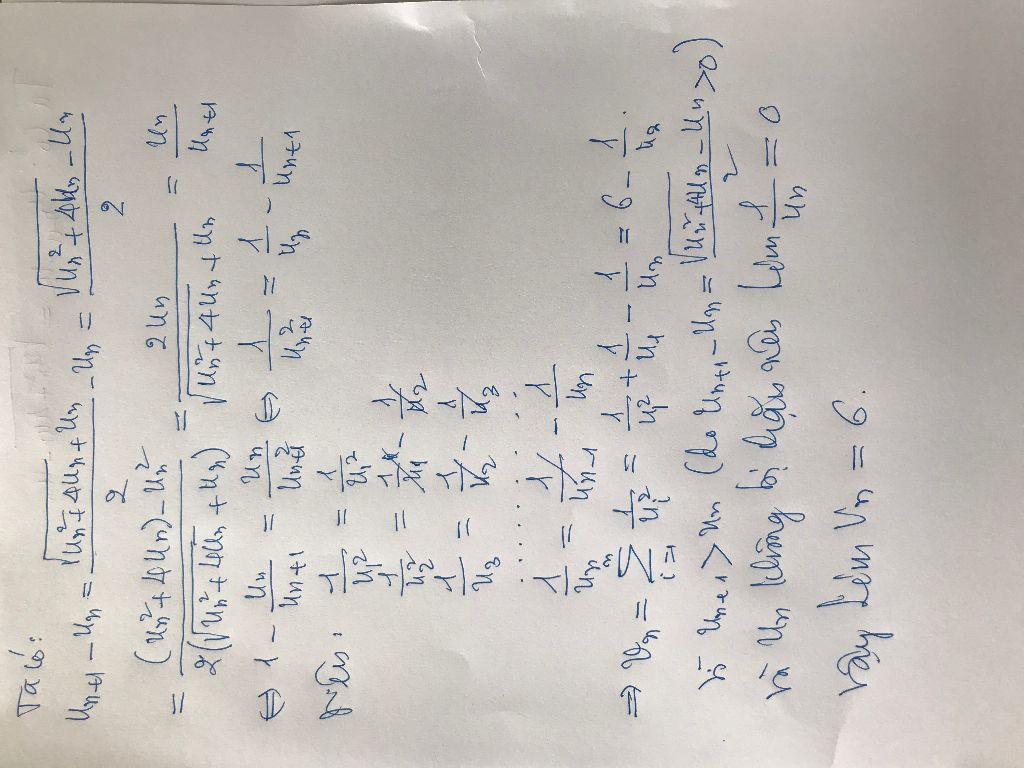 Ta có:
u_{n+1} - u_n = \frac{\sqrt{u_n^2 + 4u_n} + u_n}{2} - u_n = \frac{\sqrt{u_n^2 + 4u_n} - u_n}{2}
= \frac{(u_n^2 + 4u_n) - u_n^2}{2(\sqrt{u_n^2 + 4u_n} + u_n)} = \frac{2u_n}{\sqrt{u_n^2 + 4u_n} + u_n} = \frac{u_n}{u_{n+1}}
⇔ 1 - \frac{u_n}{u_{n+1}} = \frac{u_n}{u_{n+1}^2} ⇔ \frac{1}{u_{n+1}^2} = \frac{1}{u_n} - \frac{1}{u_{n+1}}
\frac{1}{u_1^2} = \frac{1}{u_1^2}
\frac{1}{u_2^2} = \frac{1}{u_1} - \frac{1}{u_2}
\frac{1}{u_3} = \frac{1}{u_2} - \frac{1}{u_3}
..........
\frac{1}{u_n} = \frac{1}{u_{n-1}} - \frac{1}{u_n}
⇒ v_n = \sum_{i=1}^{n} \frac{1}{u_i^2} = \frac{1}{u_1^2} + \frac{1}{u_1} - \frac{1}{u_n} = 6 - \frac{1}{u_n}.
vì u_{n+1} > u_n (do u_{n+1} - u_n = \frac{\sqrt{u_n^2 + 4u_n} - u_n}{2} > 0)
và u_n không bị chặn nên lim \frac{1}{u_n} = 0
Vậy lim v_n = 6.